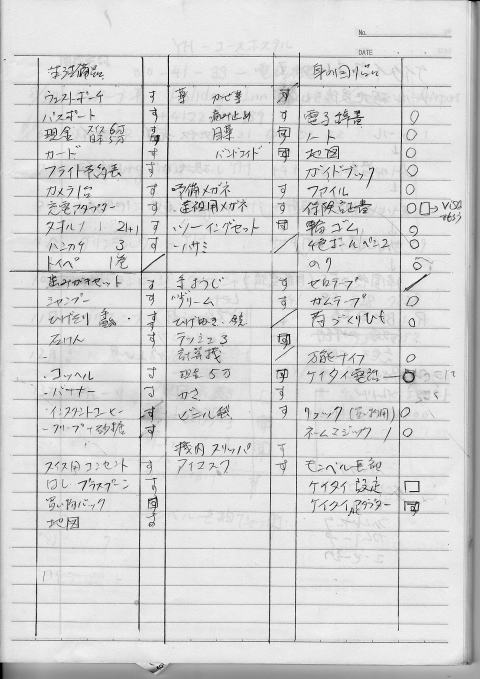 No.
DATE
生活備品
身の回り品
ウエストポーチ す 薬 かぜ薬 す
パスポート す 痛み止め す 電子辞書 ○
現金 スイス 6万 日本 5万 す 目薬 ノート ○
カード す バンドエイド 地図 ○
フライト予約表 す ガイドブック ○
カメラ 1台 す 予備メガネ す ファイル ○
充電アダプター す 遠視用メガネ す 保険証書 ○ □→VISA
タオル 1 2+1 す ソーイングセット 輪ゴム ○
ハンカチ 3 す ハサミ 4色ボールペン 2 ○
トイペ 1巻 のり ○
歯みがきセット す 手ようじ す セロテープ
シャンプー す クリーム す ガムテープ ○
ひげそり す ひげぬき・鏡 す 荷づくりひも ○
石けん す ティッシュ 3 す
計算機 万能ナイフ ○
・コッヘル す 現金 5万 ケイタイ電話 ○
・バーナー す かさ す
・インスタントコーヒー す ビニル袋 す リュック ○
・クリープ・砂糖 す ネームマジック 1 ○
機内スリッパ す
スイス用コンセント す アイマスク す モンベル
はし プラスプーン す ケイタイ 設定 □
買い物バック す ケイタイ アダプター す
地図 す